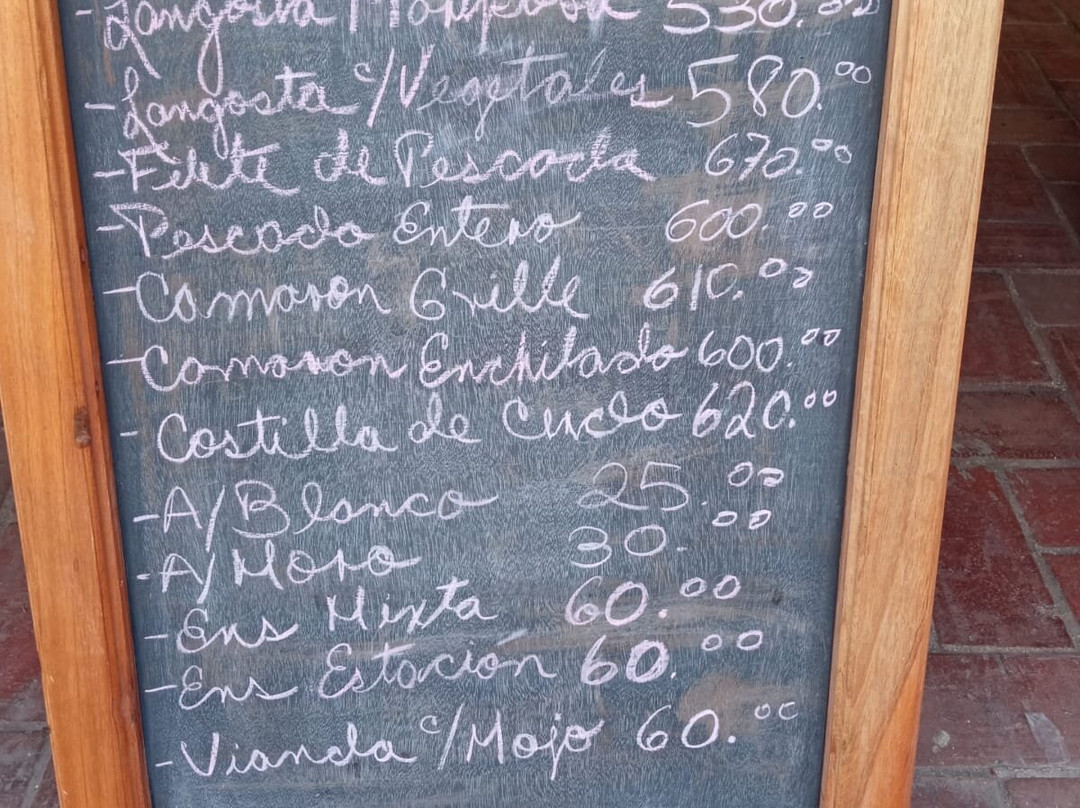 -Langosta Mariposa 530.00
-Langosta c/Vegetales 580.00
-Filete de Pescado 670.00
-Pescado Entero 600.00
-Camaron Grille 610.00
-Camaron Enchilado 600.00
-Costilla de Cerdo 620.00
-A/Blanco 25.00
-A/Moro 30.00
-Ens Mixta 60.00
-Ens Estacion 60.00
-Vianda c/Mojo 60.00